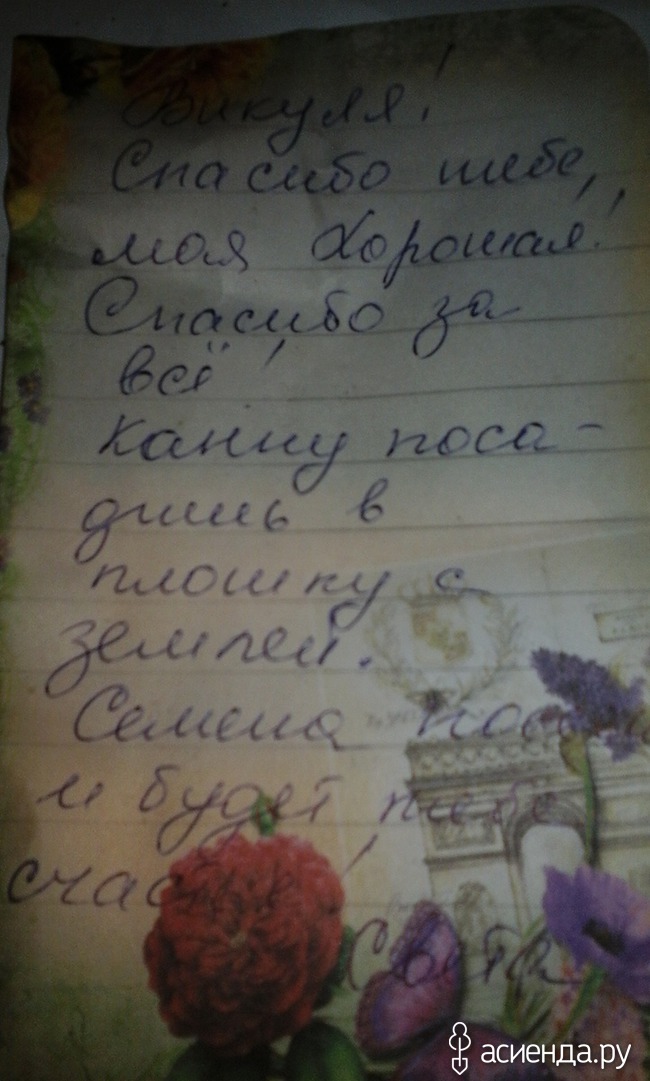 Викуля!
Спасибо тебе,
моя хорошая!
Спасибо за
всё!
Канну поса-
дишь в
плошку с
землей.
Семена
и будет тебе
счастье!
Света
асиенда.ру